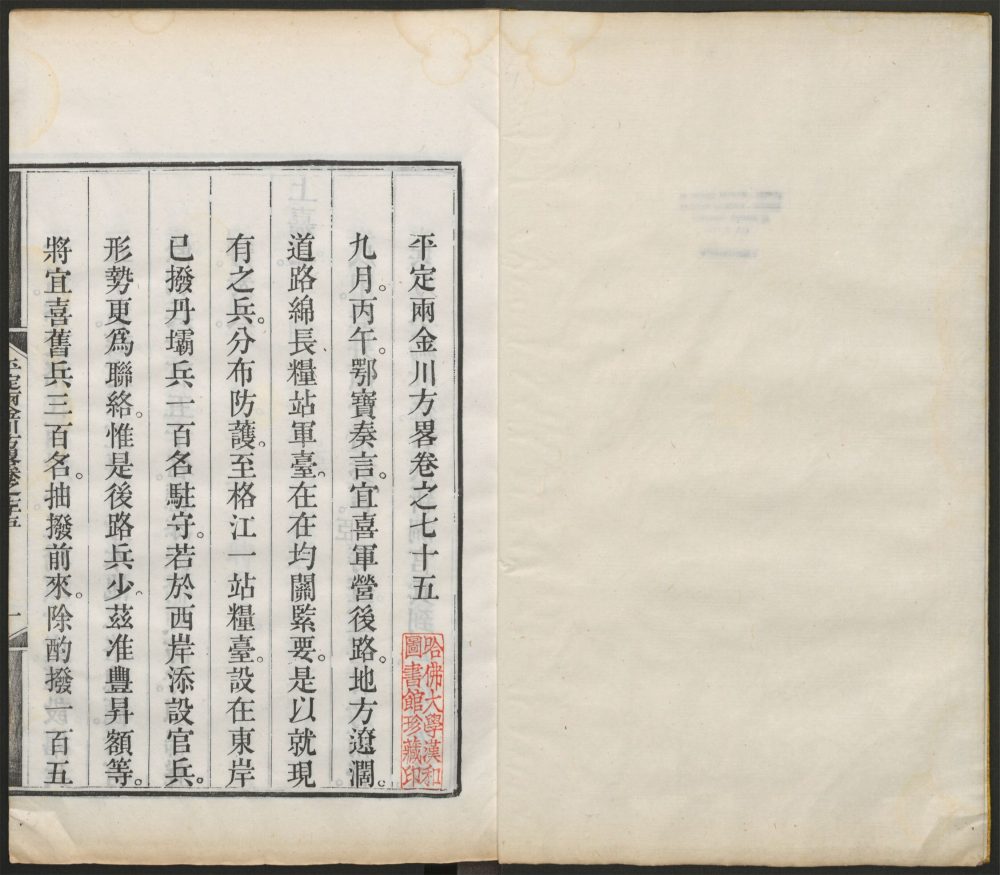 平定兩金川方畧卷之七十五
九月。丙午。鄂寶奏言。宜喜軍營後路。地方遼濶。
道路綿長糧站軍臺。在在均關緊要。是以就現
有之兵。分布防護。至格江一站糧臺。設在東岸
已撥丹壩兵一百名駐守。若於西岸添設官兵。
形勢更爲聯絡。惟是後路兵少。茲准豐昇額等。
將宜喜舊兵三百名。抽撥前來。除酌撥一百五
哈佛大學漢和
圖書館珍藏印
平定兩金川方畧卷之七十五
一